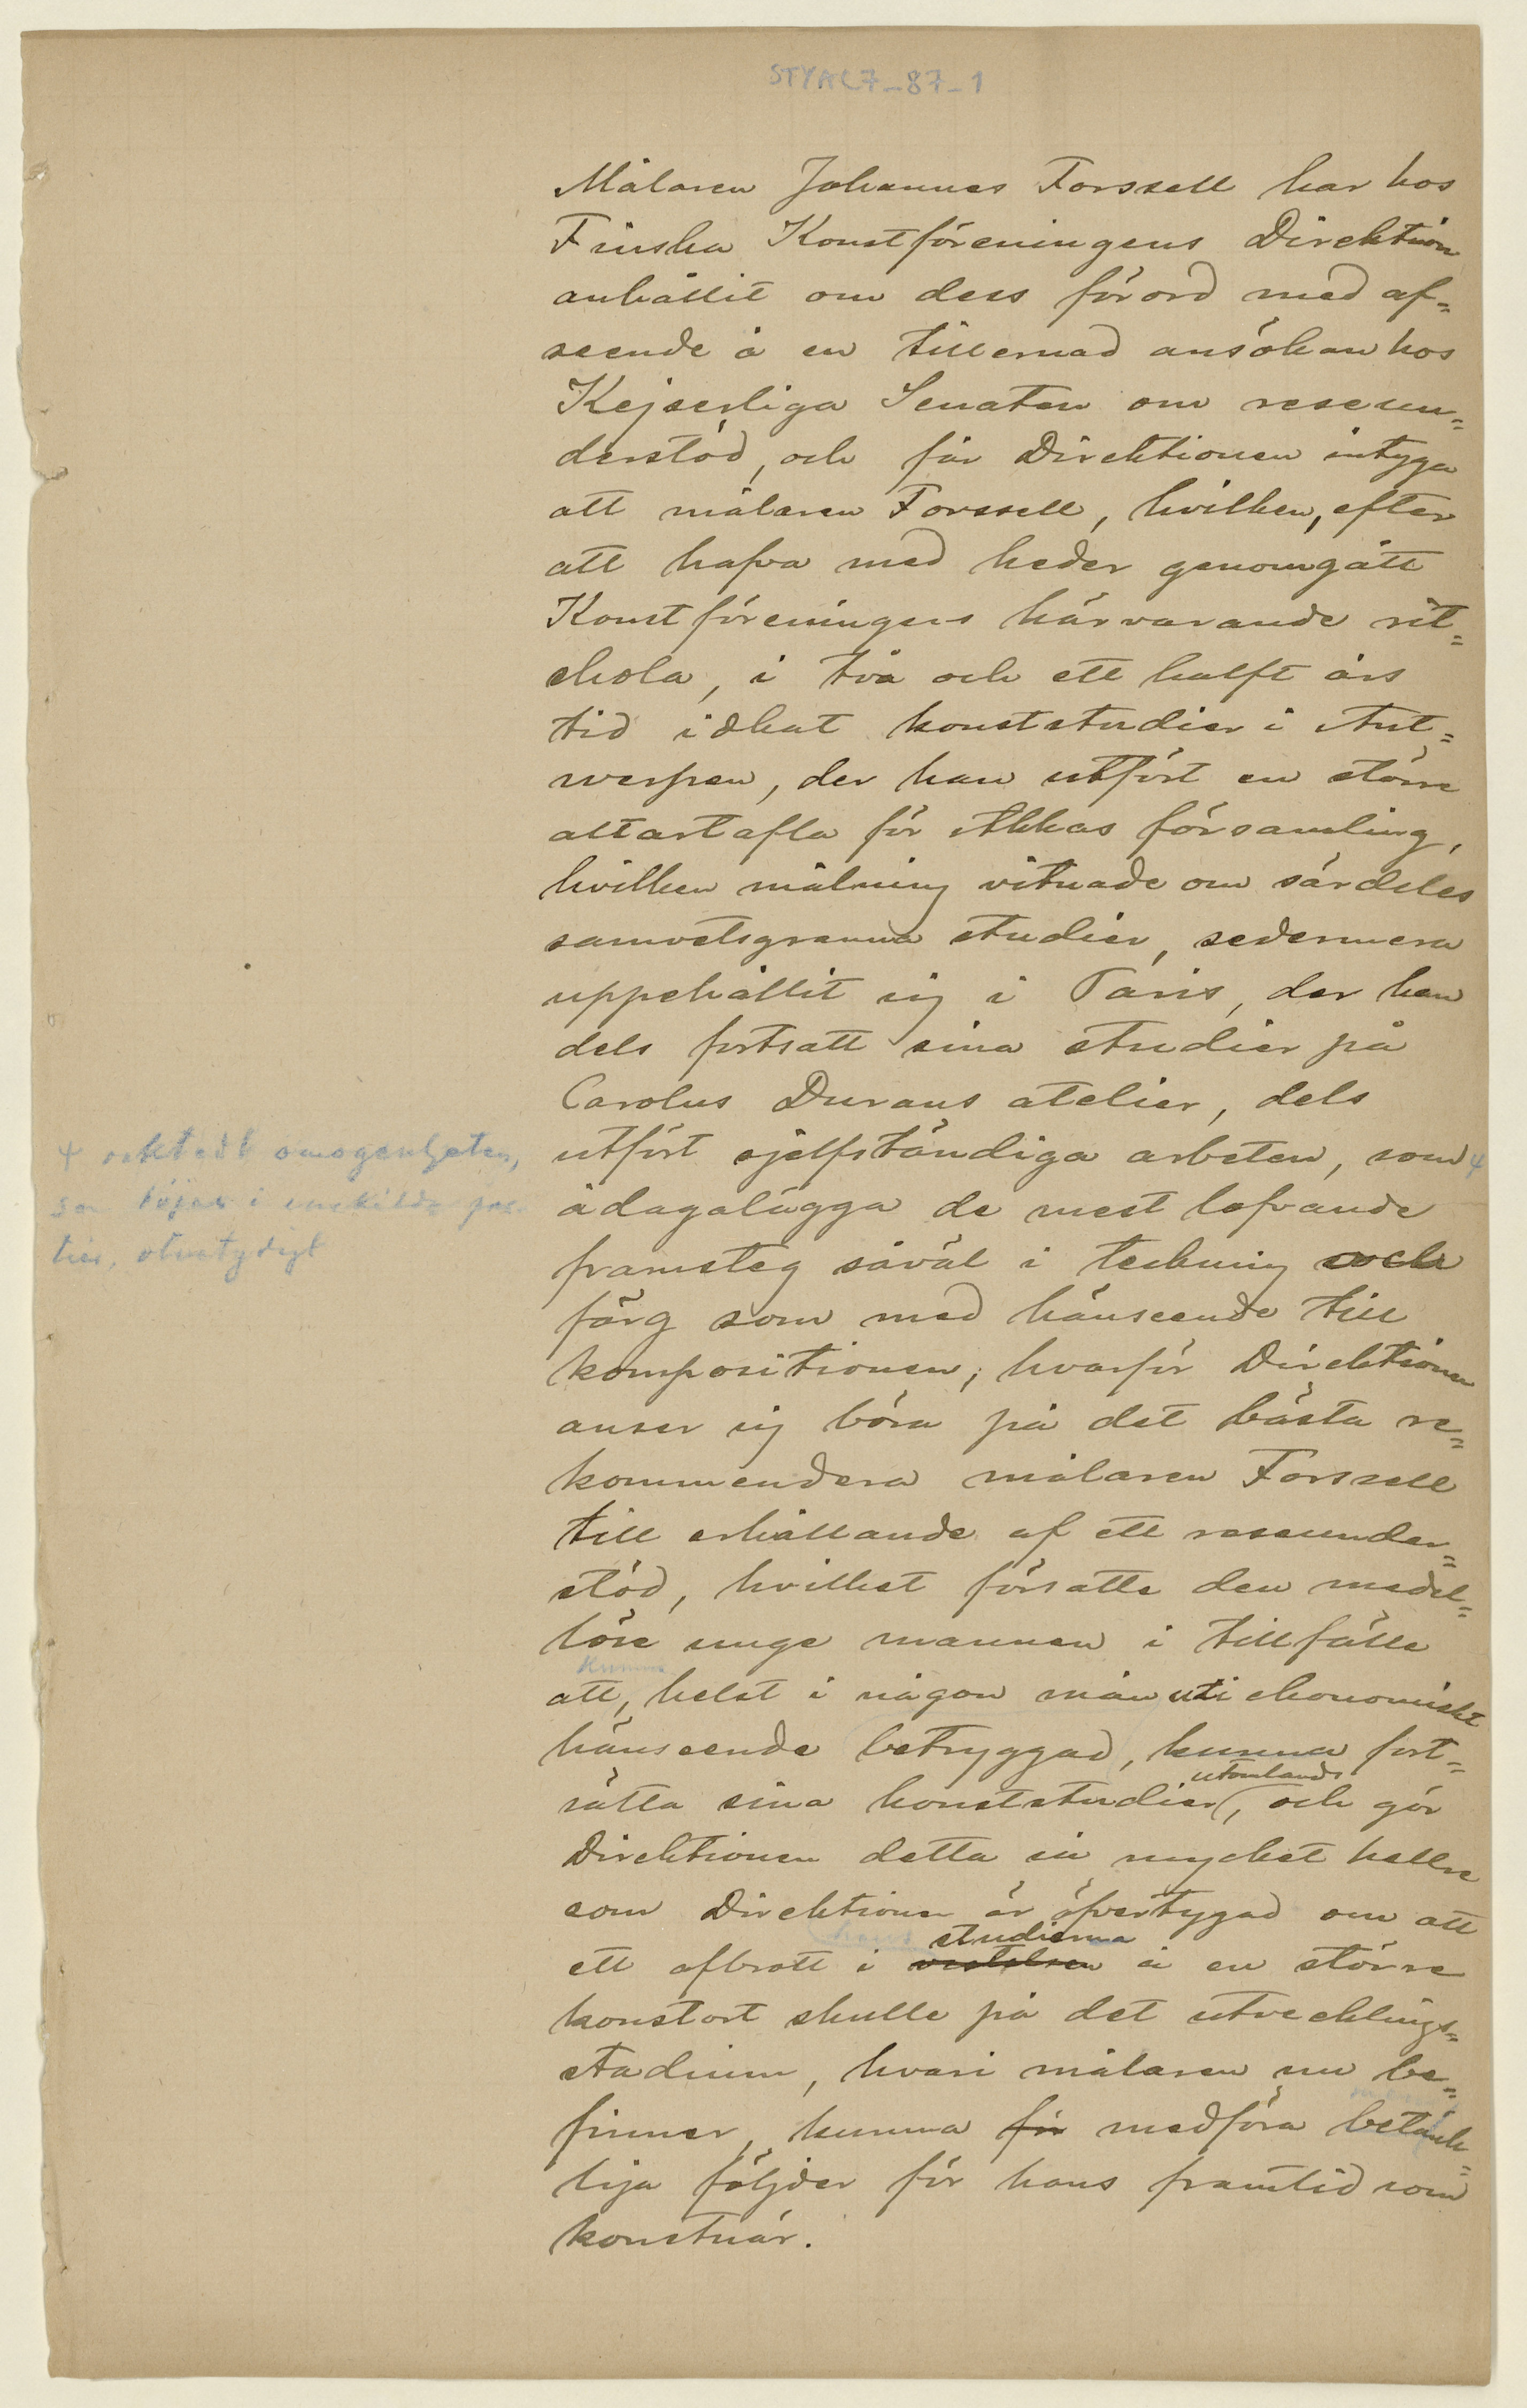 STYAC7-87-1
Målaren Johannes Forssell har hos
Finska Konstföreningens Direktion
anhållit om dess förord med af=
seende å en tillernad ansökan hos
Kejserliga Senaten om reseun=
derstöd, och får Direktionen intyga
att målaren Forssell, hvilken, efter
att hafva med heder genomgått
Konstföreningens härvarande rit=
skola, i två och ett halft års
tid idkat konststudier i Ant=
werpen, der han utfört en större
altartafla för Akkas församling,
hvilken målning vitnade om särdeles
samvetsgranna studier, sedermera
uppehållit sig i Paris, der han
dels fortsatt sina studier på
Carolus Durans atelier, dels
utfört sjelfständiga arbeten, som
omogenheten,
som röjes i enskilda par-
tier, otvetydigt
ådagalägga de mest lofvande
framsteg såväl i teckning och
färg som med hänseende till
kompositionen; hvarför Direktionen
anser sig böra på det bästa re=
kommendera målaren Forssell
till erhållande af ett reseunder=
stöd, hvilket försatte den medel=
löse unge mannen i tillfälle
kunna
att, helst i någon mån uti ekonomiskt
hänseende betryggad, kunna fort=
utomlands
sätta sina konststudier, och gör
Direktionen detta så mycket hellre
som Direktionen är öfvertygad om att
hans studierna
ett afbrott i vistelsen å en större
konstort skulle på det utvecklings=
stadium, hvari målaren nu be=
finner, kunna för medföra betänk=
liga följder för hans framtid som
konstnär.